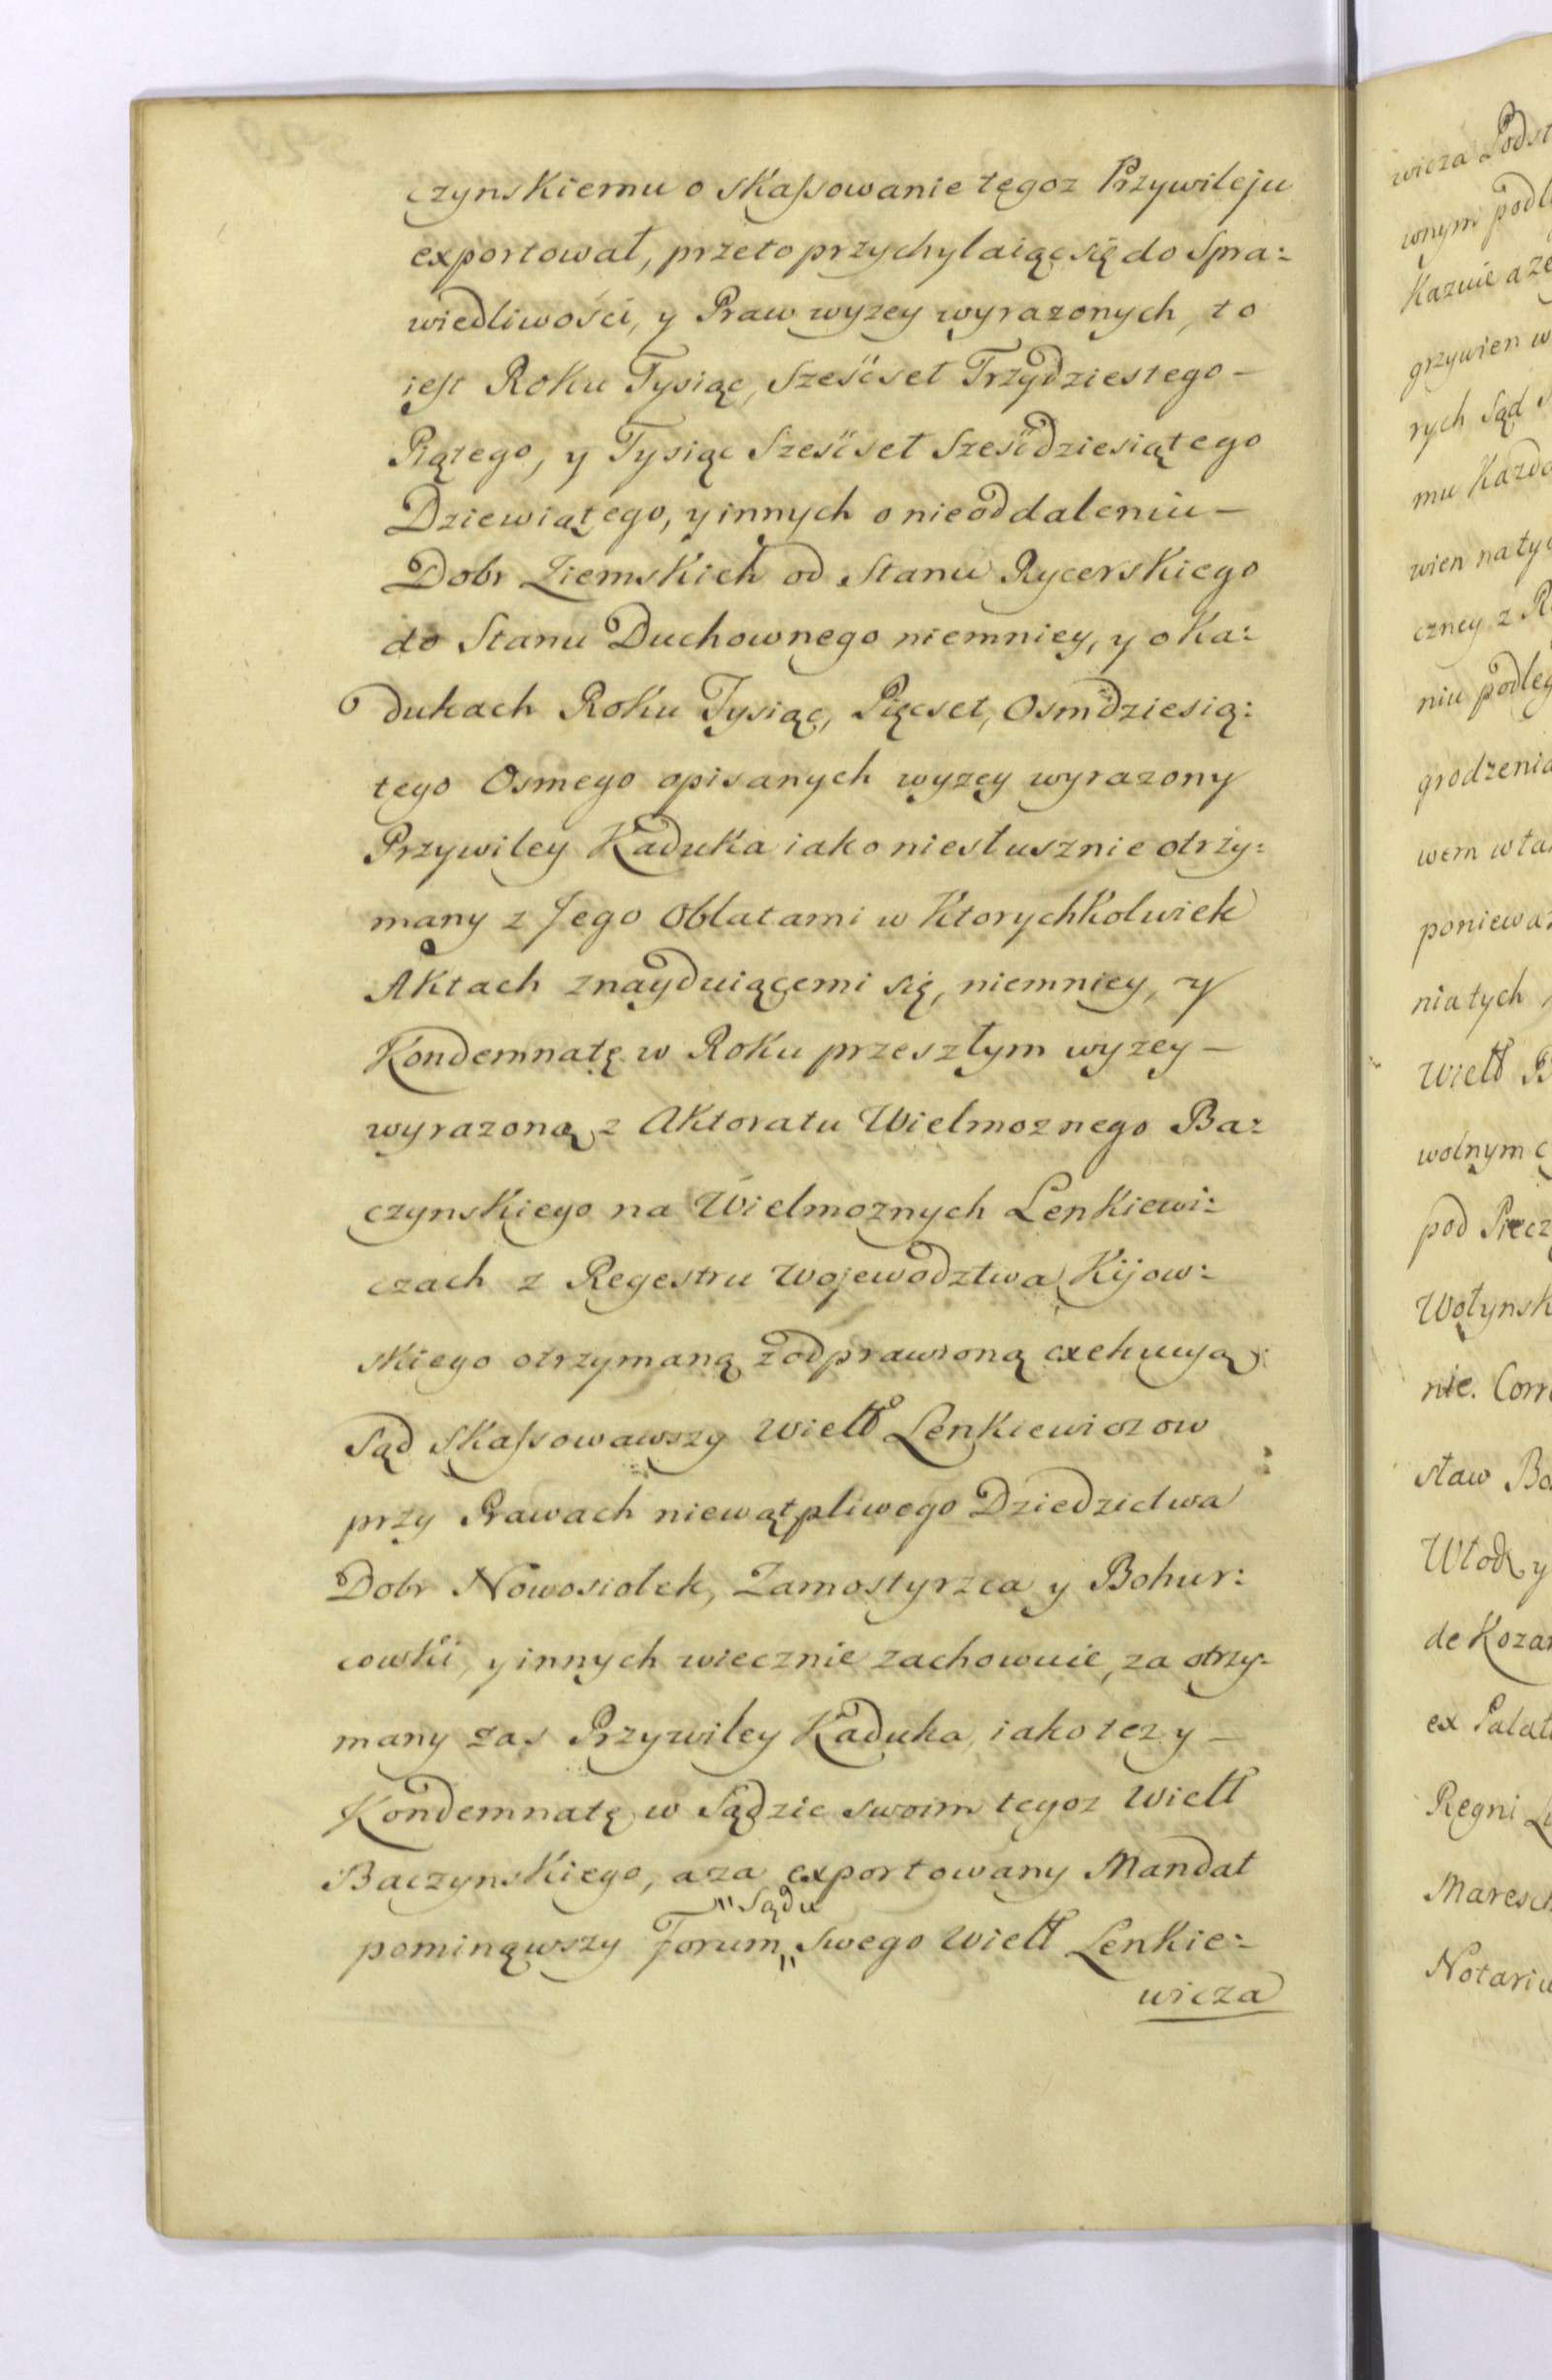 czynskiemu o skassowanie tegoz Przywileju
exportował, przeto przychylaiąc się do Spra:
wiedliwości, y Praw wyzey wyrazonych, to
iest Roku Tysiąc, Sześćset Trzydziestego —
Piątego, y Tysiąc Sześćset Sześćdziesiątego
Dziewiątego, y innych o nieoddaleniu —
Dobr Ziemskich od Stanu Rycerskiego
do Stanu Duchownego niemniey, y o Ka:
dukach Roku Tysiąc, Pięcset, Osmdziesią:
tego Osmego opisanych wyzey wyrazony
Przywiley Kaduka iako niesłusznie otrzy:
many z Jego Oblatami w Ktorychkolwiek
Aktach znayduiącemi się, niemniey, y
Kondemnatę w Roku przeszłym wyzey —
wyrazoną z Aktoratu Wielmoznego Ba:
czynskiego na Wielmoznych Lenkiewi:
czach z Regestru Wojewodztwa Kijow:
skiego otrzymaną z odprawioną exekucyą
Sąd skassowawszy Wiełł Lenkiewiczow
przy Prawach niewątpliwego Dziedzictwa
Dobr Nowosiolek, Zamostyrzca y Bohur:
cowki, y innych wiecznie zachowuie, za otrzy:
many zas Przywiley Kaduka, iako tez y —
Kondemnatę w Sądzie swoim tegoz Wiełł
Baczynskiego, a za exportowany Mandat
"Sądu
pominąwszy Forum " Swego Wiełł Lenkie:
wicza
wicza Podst
wnym podl
Kazuie a ze
grzywien w
rych Sąd
mu Kazd
wien naty
czney z R
niu podleg
grodzenia
wem w ta
poniewaz
nia tych
Wiełł B
wolnym
pod Piecz
Wołynsk
nie. Corr
sław Bo
Włodz y
de Kozar
ex Palat
Regni
Maresch
Notariu